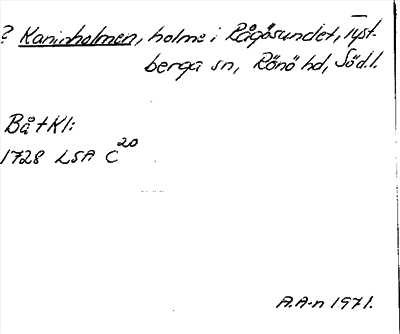 ? Kaninholmen, holme i Rågösundet, Tyst-
berga sn, Rönö hd, Södl.
Bå + Kl:
1728 LSA C 20
A.A-n 1971.